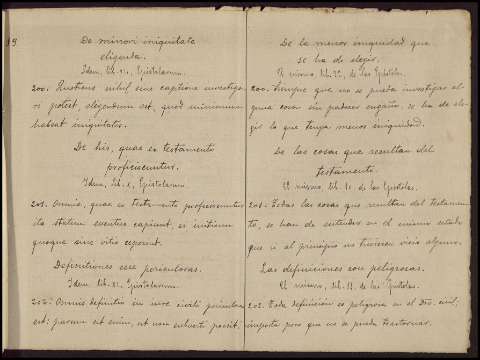 19
De minori iniquitate
eligenda.
Idem, lib. XI, Epistolarum.
200: Quotiens nihil sine captione investiga-
ri potest, eligendum est, quod minimum
habeat iniquitatis.
De his, quae ex testamento
proficiscuntur.
Idem, lib. X, Epistolarum.
201. Omnia, quae ex testamento proficiscuntur
ita statum eventus capiunt, si initium
quoque sine vitio ceperint.
Definitiones esse periculosas.
Idem lib. XI, Epistolarum.
202: Omnis definitio in iure civili periculosa
est: parum est enim, ut non subverti possit,
De la menor iniquidad que
se ha de elegir.
El mismo, lib. de las Epístolas.
200. Siempre que no se pueda investigar al-
guna cosa sin padecer engaño, se ha de ele-
gir lo que tenga menos iniquidad.
De las cosas que resultan del
testamento.
El mismo, lib. de las Epístolas.
201. Todas las cosas que resultan del testamen-
to, se han de entender en el mismo estado
que si al principio no tuvieran vicio alguno.
Las definiciones son peligrosas.
El mismo, lib. 11. de las Epístolas.
202. Toda definición es peligrosa en el Dro. civil;
importa poco que no se pueda trastornar.